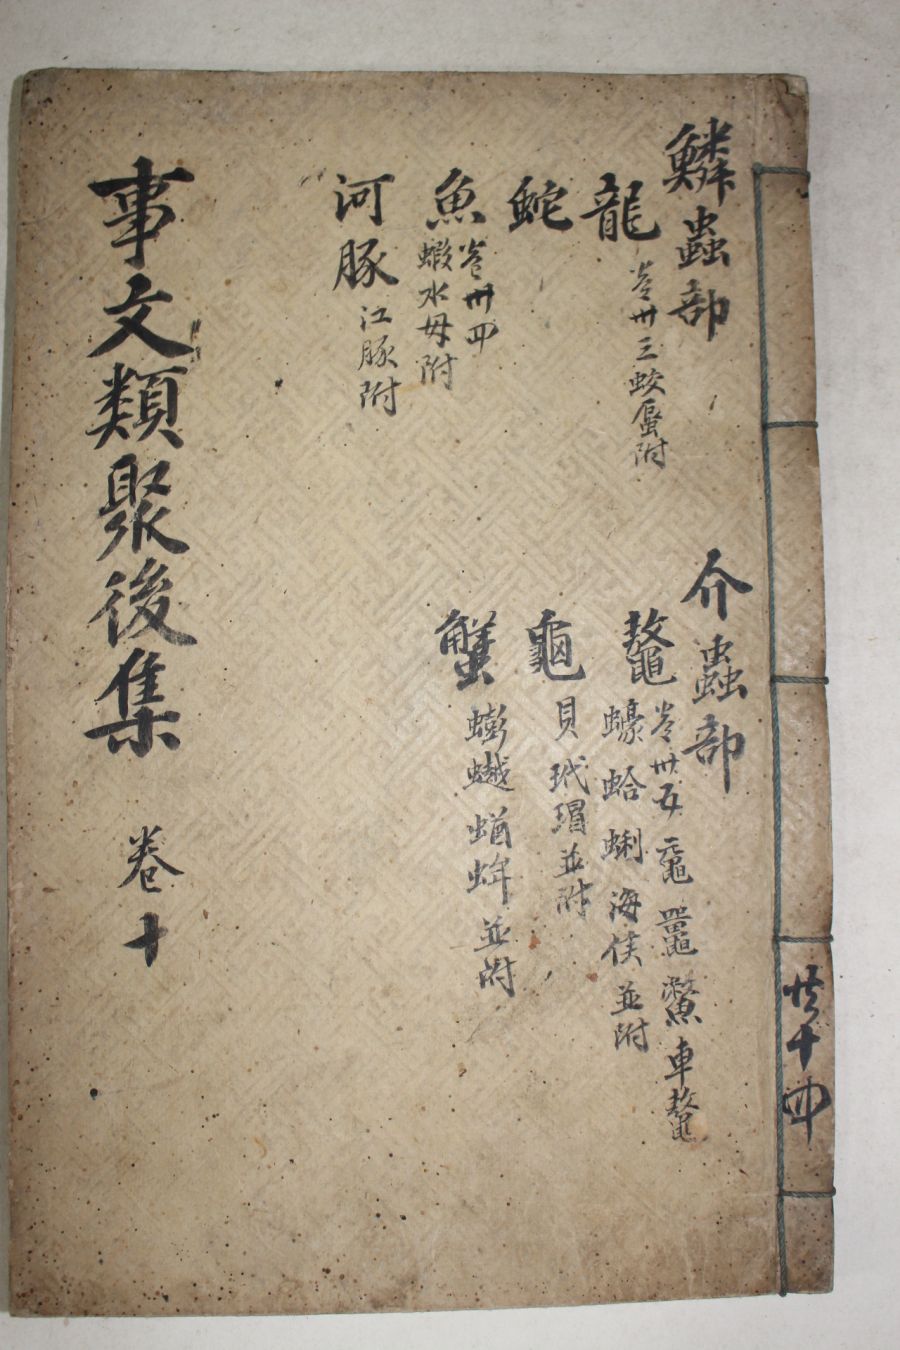 鱗蟲部
龍 卷卅三蛟蜃附
蛇
魚 卷卅四
蝦水母附
河豚 江豚附
介蟲部
鼇 卷卅五 黿 鼉 鱉 車鼇
蠔 蛤 蜊 海 並附
龜 貝 玳瑁 並附
蟹 蟛蟚 蝤蛑 並附
事文類聚後集 卷十
共十四